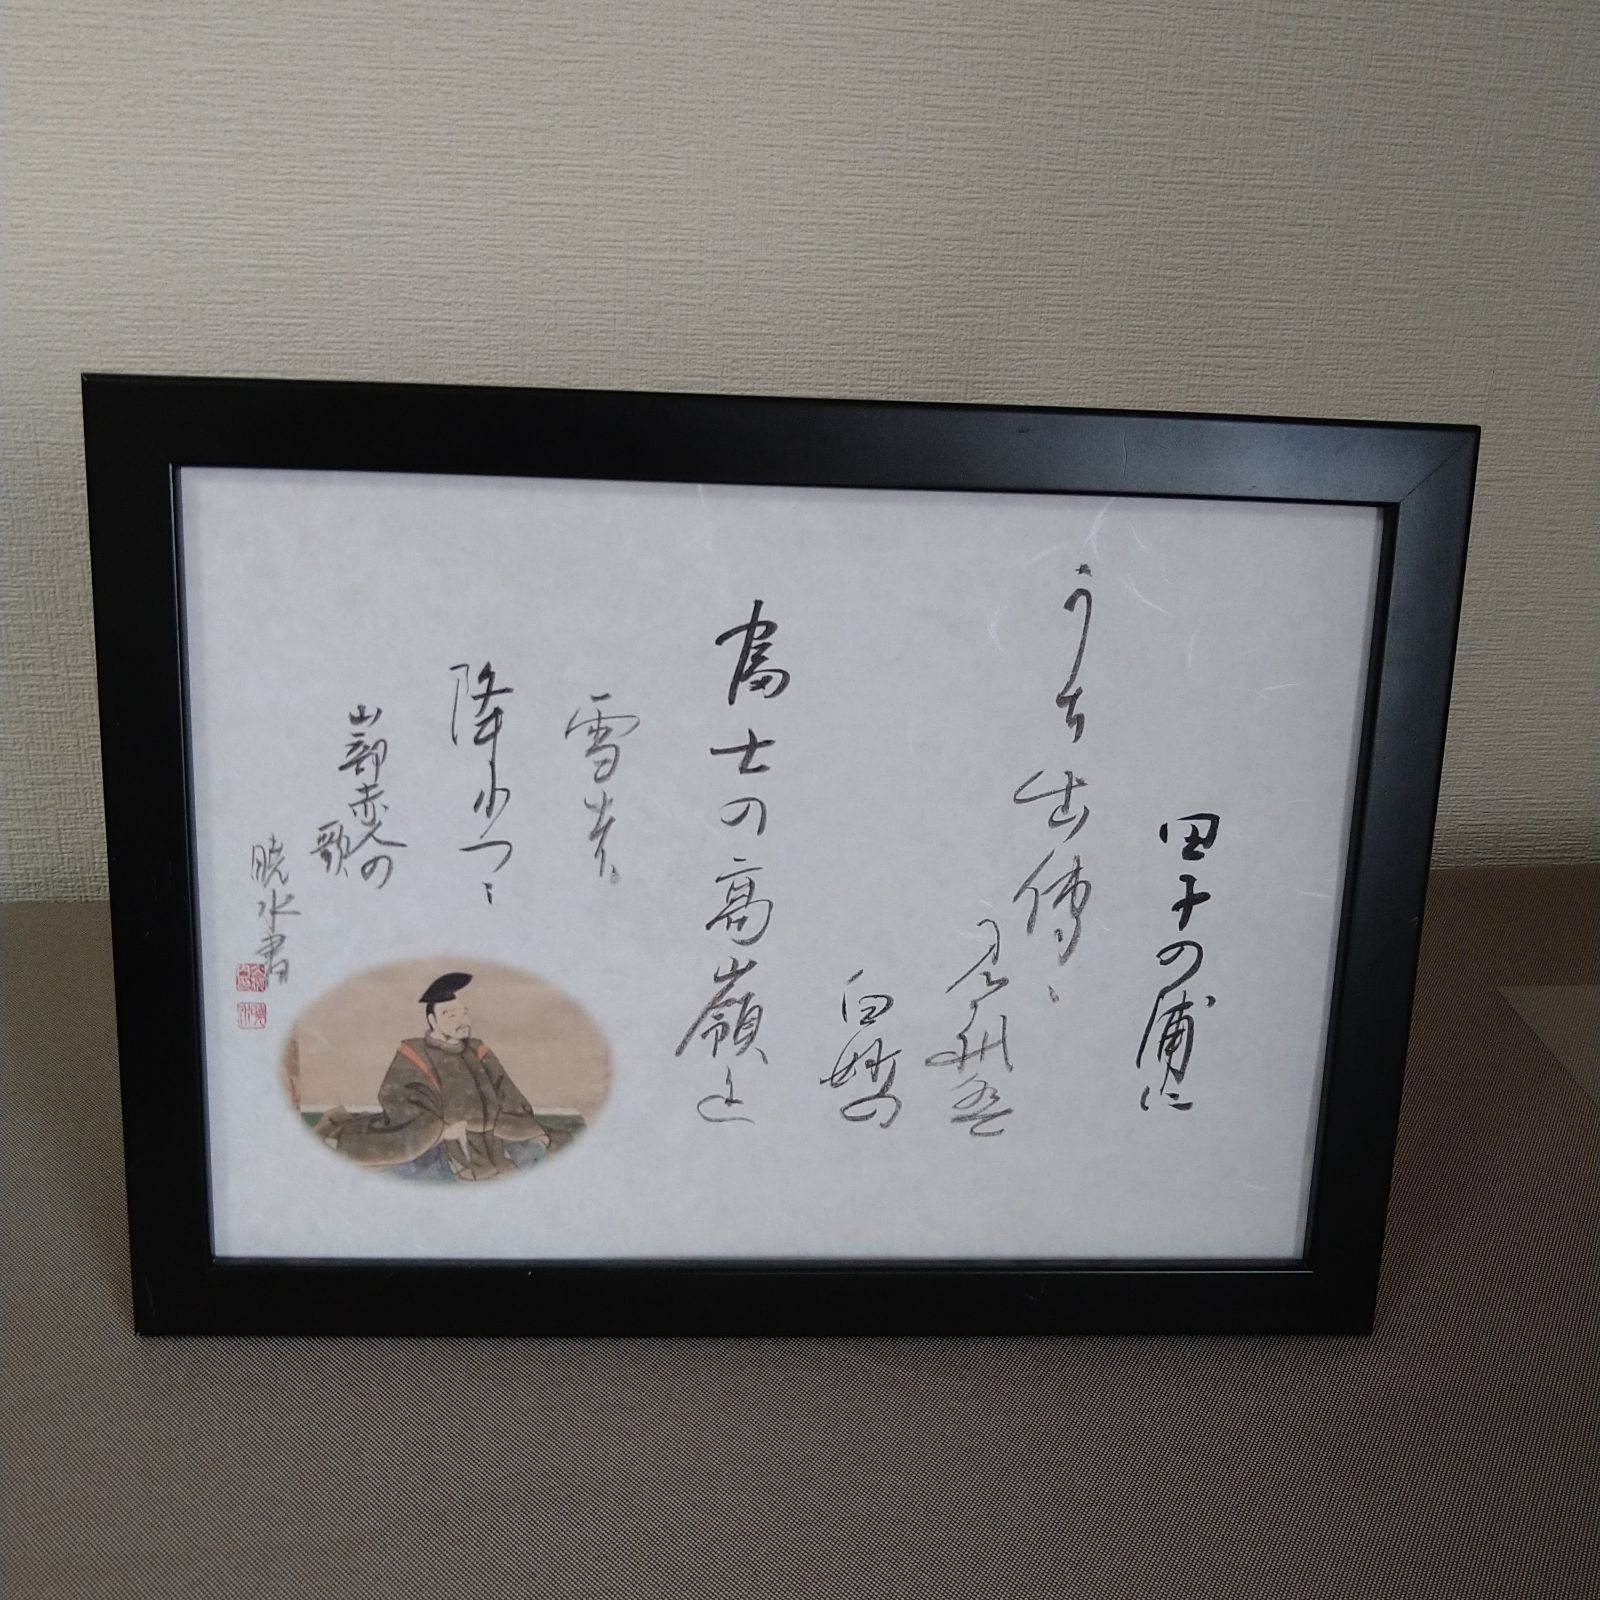 田子の浦に
うち出傳ゝ
見禮盤
白妙の
富士の高嶺に
雪は
降りつゝ
山部赤人の
歌
暁水書